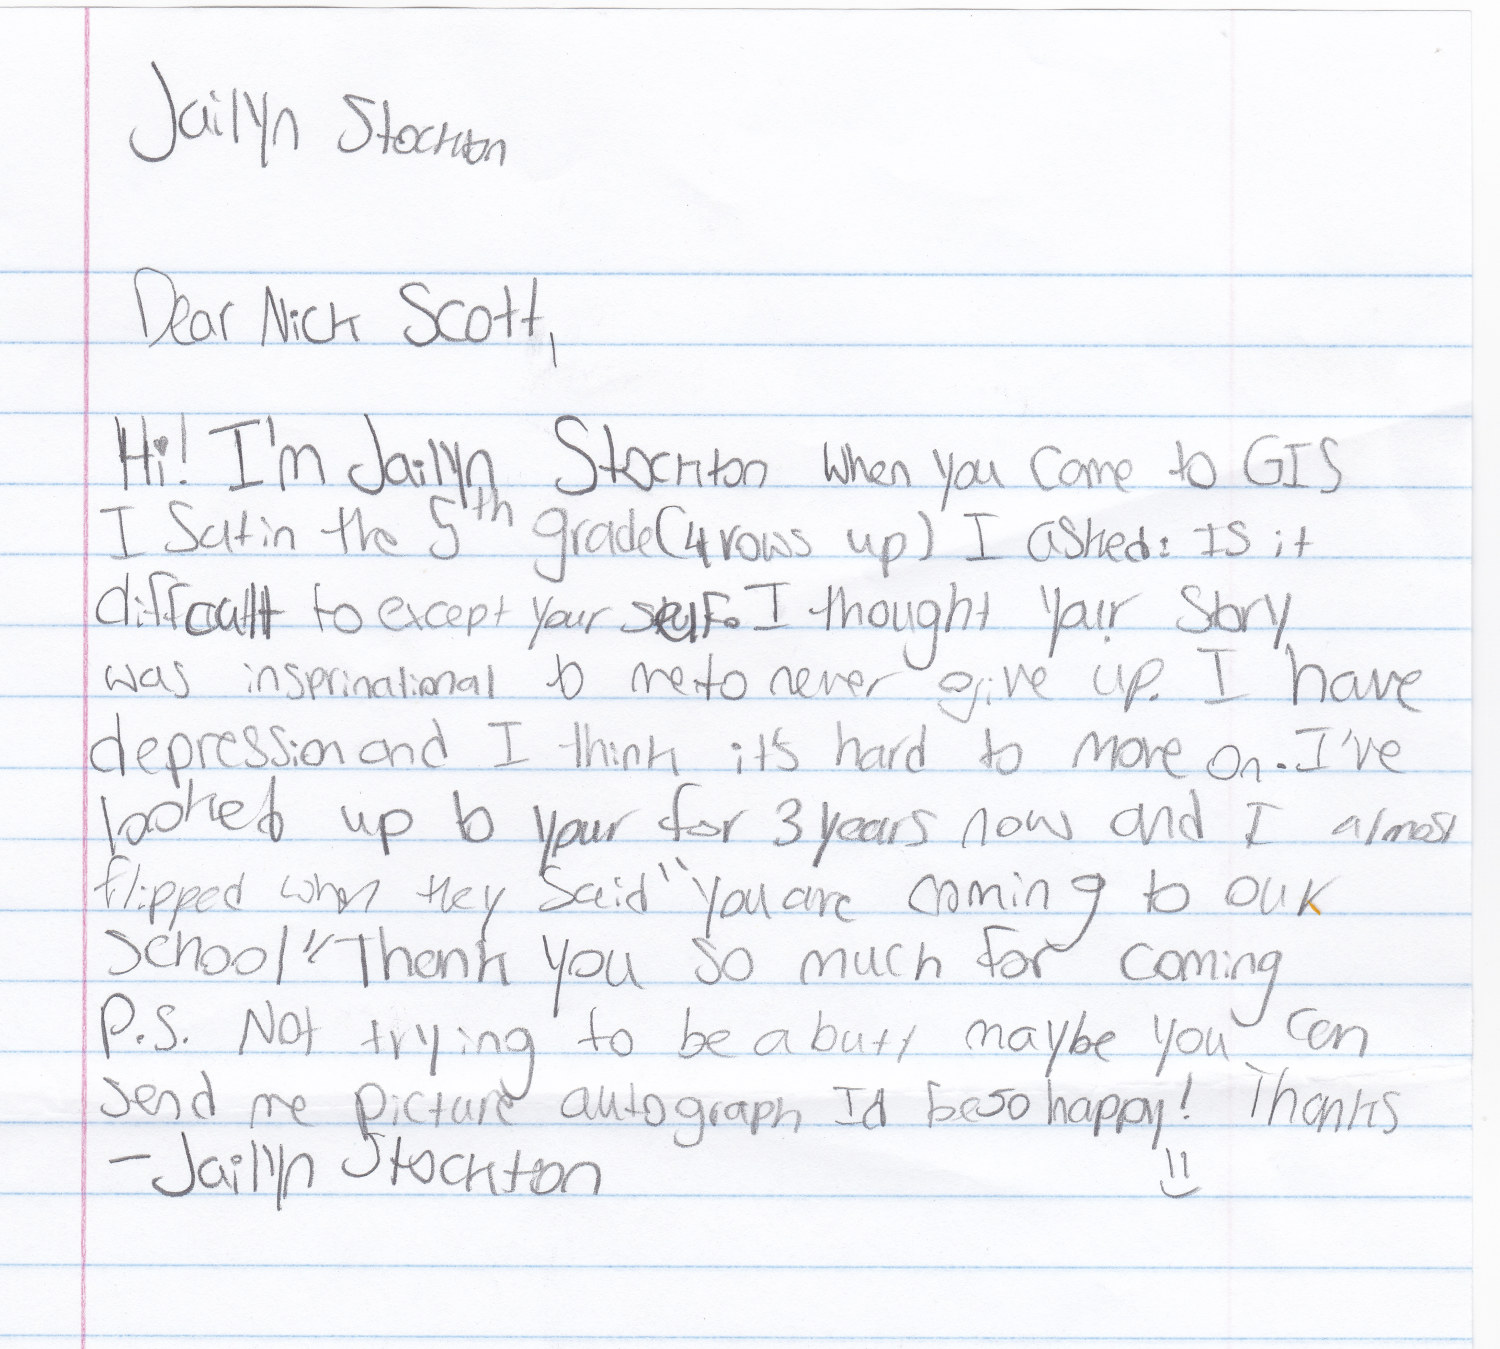 Jailyn Stockton
Dear Nick Scott,
Hi! I'm Jailyn Stockton when you come to GIS
I Sat in the 5th grade (4 rows up) I asked: Is it
difficult to except your self. I thought your Story
was insprinational to me to never give up. I have
depression and I think it's hard to move on. I've
looked up to your for 3 years now and I almost
flipped when they Said "you are coming to our
School" Thank you so much for coming
P.S. Not trying to be a butt maybe you can
send me picture autograph Id be so happy! Thanks
- Jailyn Stockton